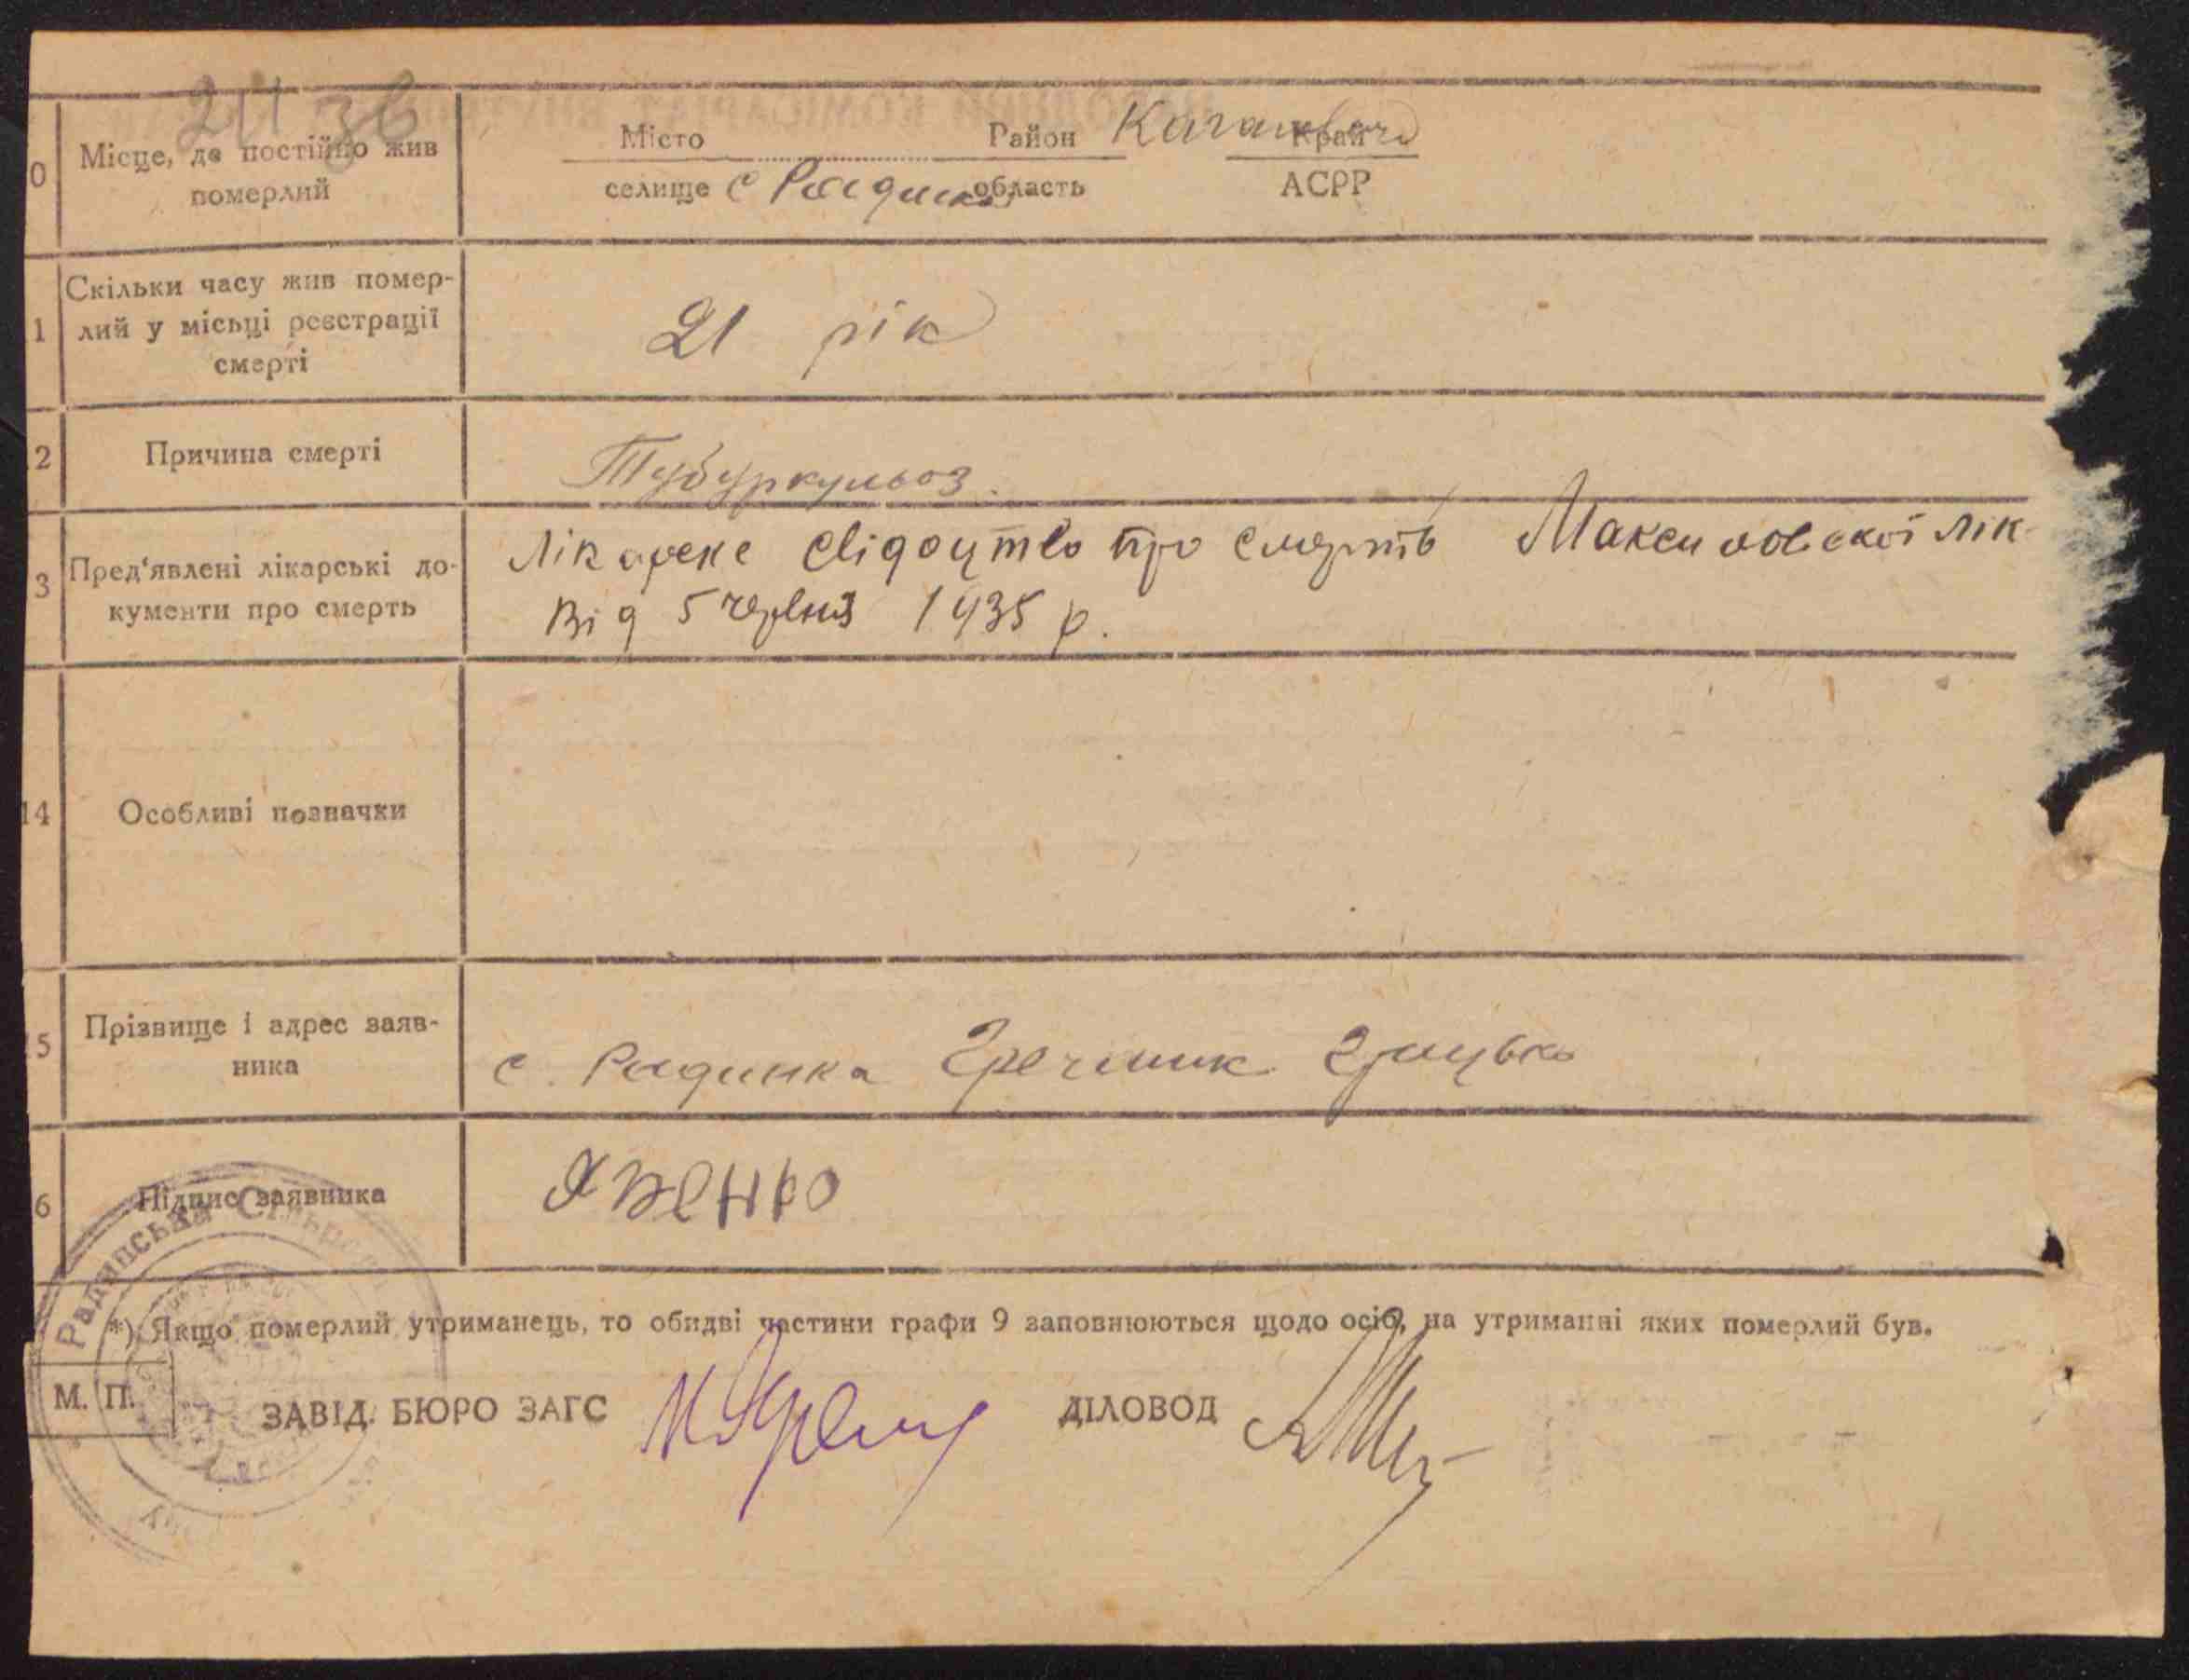 10 Місце, де постійно жив
померлий
Місто Район Каганович Край
селище с Радинка область АСРР
11 Скільки часу жив помер-
лий у місьці реєстрації
смерті
21 рік
12 Причина смерті
Тубуркульоз.
13 Пред'явлені лікарські до-
кументи про смерть
Лікарске свідоцтво про смерть Максимовської лік
Від 5 червня 1935 р.
14 Особливі позначки
15 Прізвище і адрес заяв-
ника
с. Радинка Гречаник Грицько
16 Підпис заявника
Радинська Сільрада
*) Якщо померлий утриманець, то обидві частини графи 9 заповнюються щодо осіб, на утриманні яких померлий був.
М. П.
ЗАВІД. БЮРО ЗАГС
ДІЛОВОД